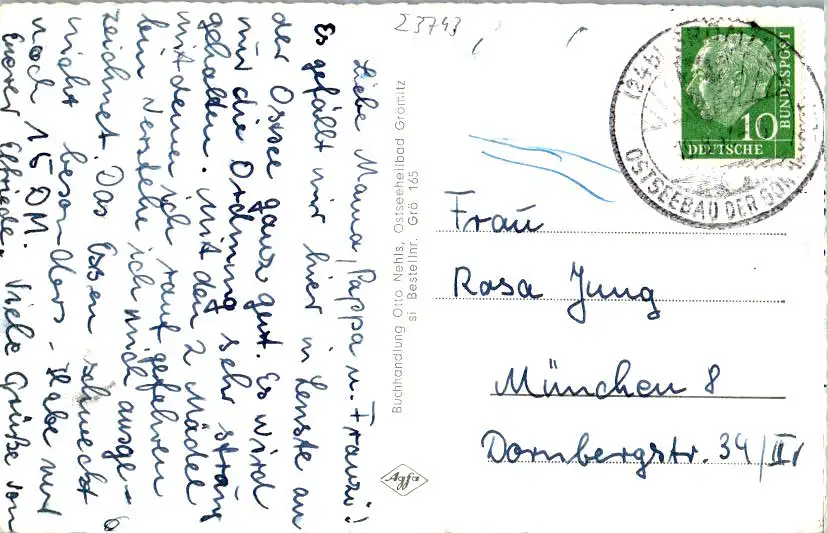 Liebe Mama, Pappa u. Franzi!
Es gefällt mir hier in Lenste an
der Ostsee ganz gut. Es wird
nur die Ordnung sehr streng
gehalten. Mit den 2 Mädel
mit denen ich rauf gefahren
bin verstehe ich mich ausge-
zeichnet. Das Essen schmeckt
nicht besonders. Habe nur
noch 15 DM. Viele Grüße von
Eurer Elfriede.
23743
Buchhandlung Otto Nehls, Ostseeheilbad Grömitz
si Bestellnr. Grö 165
Agfa
(24b)
OSTSEEBAD DER
10
DEUTSCHE
BUNDESPOST
Frau
Rosa Jung
München 8
Dornbergstr. 34/II r